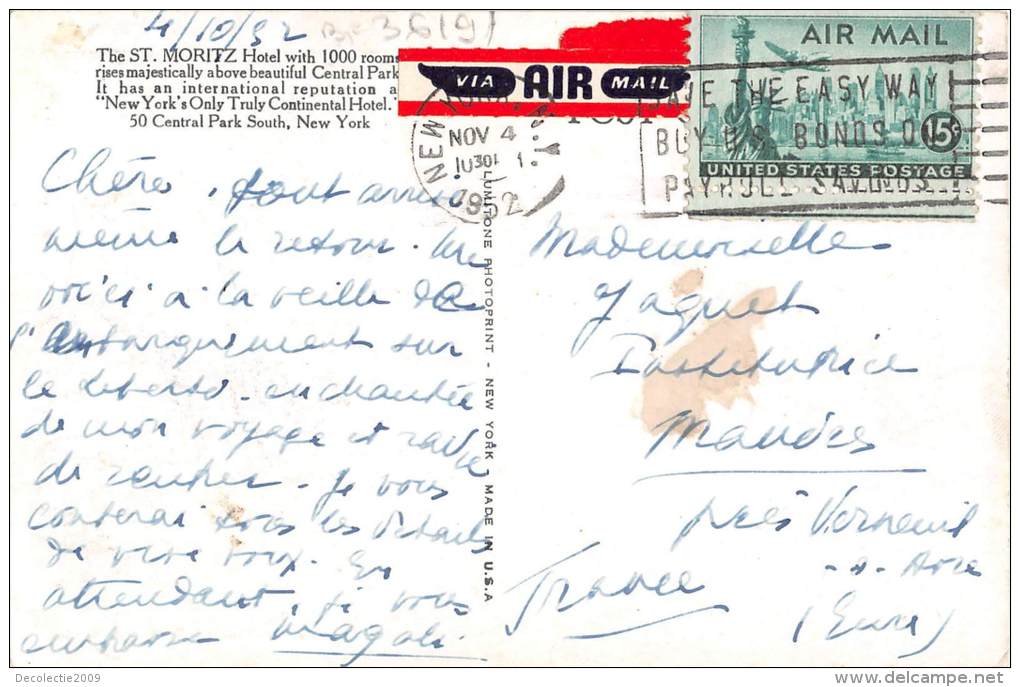 4/10/52
3619
The ST. MORITZ Hotel with 1000 rooms
rises majestically above beautiful Central Park
It has an international reputation a
"New York's Only Truly Continental Hotel."
50 Central Park South, New York
VIA AIR MAIL
AIR MAIL
15c
UNITED STATES POSTAGE
SAVE THE EASY WAY
BUY U.S. BONDS ON
PAYROLL SAVINGS
NEW YORK, N.Y.
NOV 4
1952
Chère, tout arrive
même le retour. Me
voici à la veille de
l'embarquement sur
le Liberté. enchantée
de mon voyage et ravie
de rentrer. Je vous
conterai tous les détails
de vive voix. En
attendant, je vous
embrasse Magali.
LUMITONE PHOTOPRINT - NEW YORK - MADE IN U.S.A
Mademoiselle
Jaquet
Institutrice
Mandres
près Verneuil
-s- Avre
(Eure)
France
Decolectie2009
delcampe.net